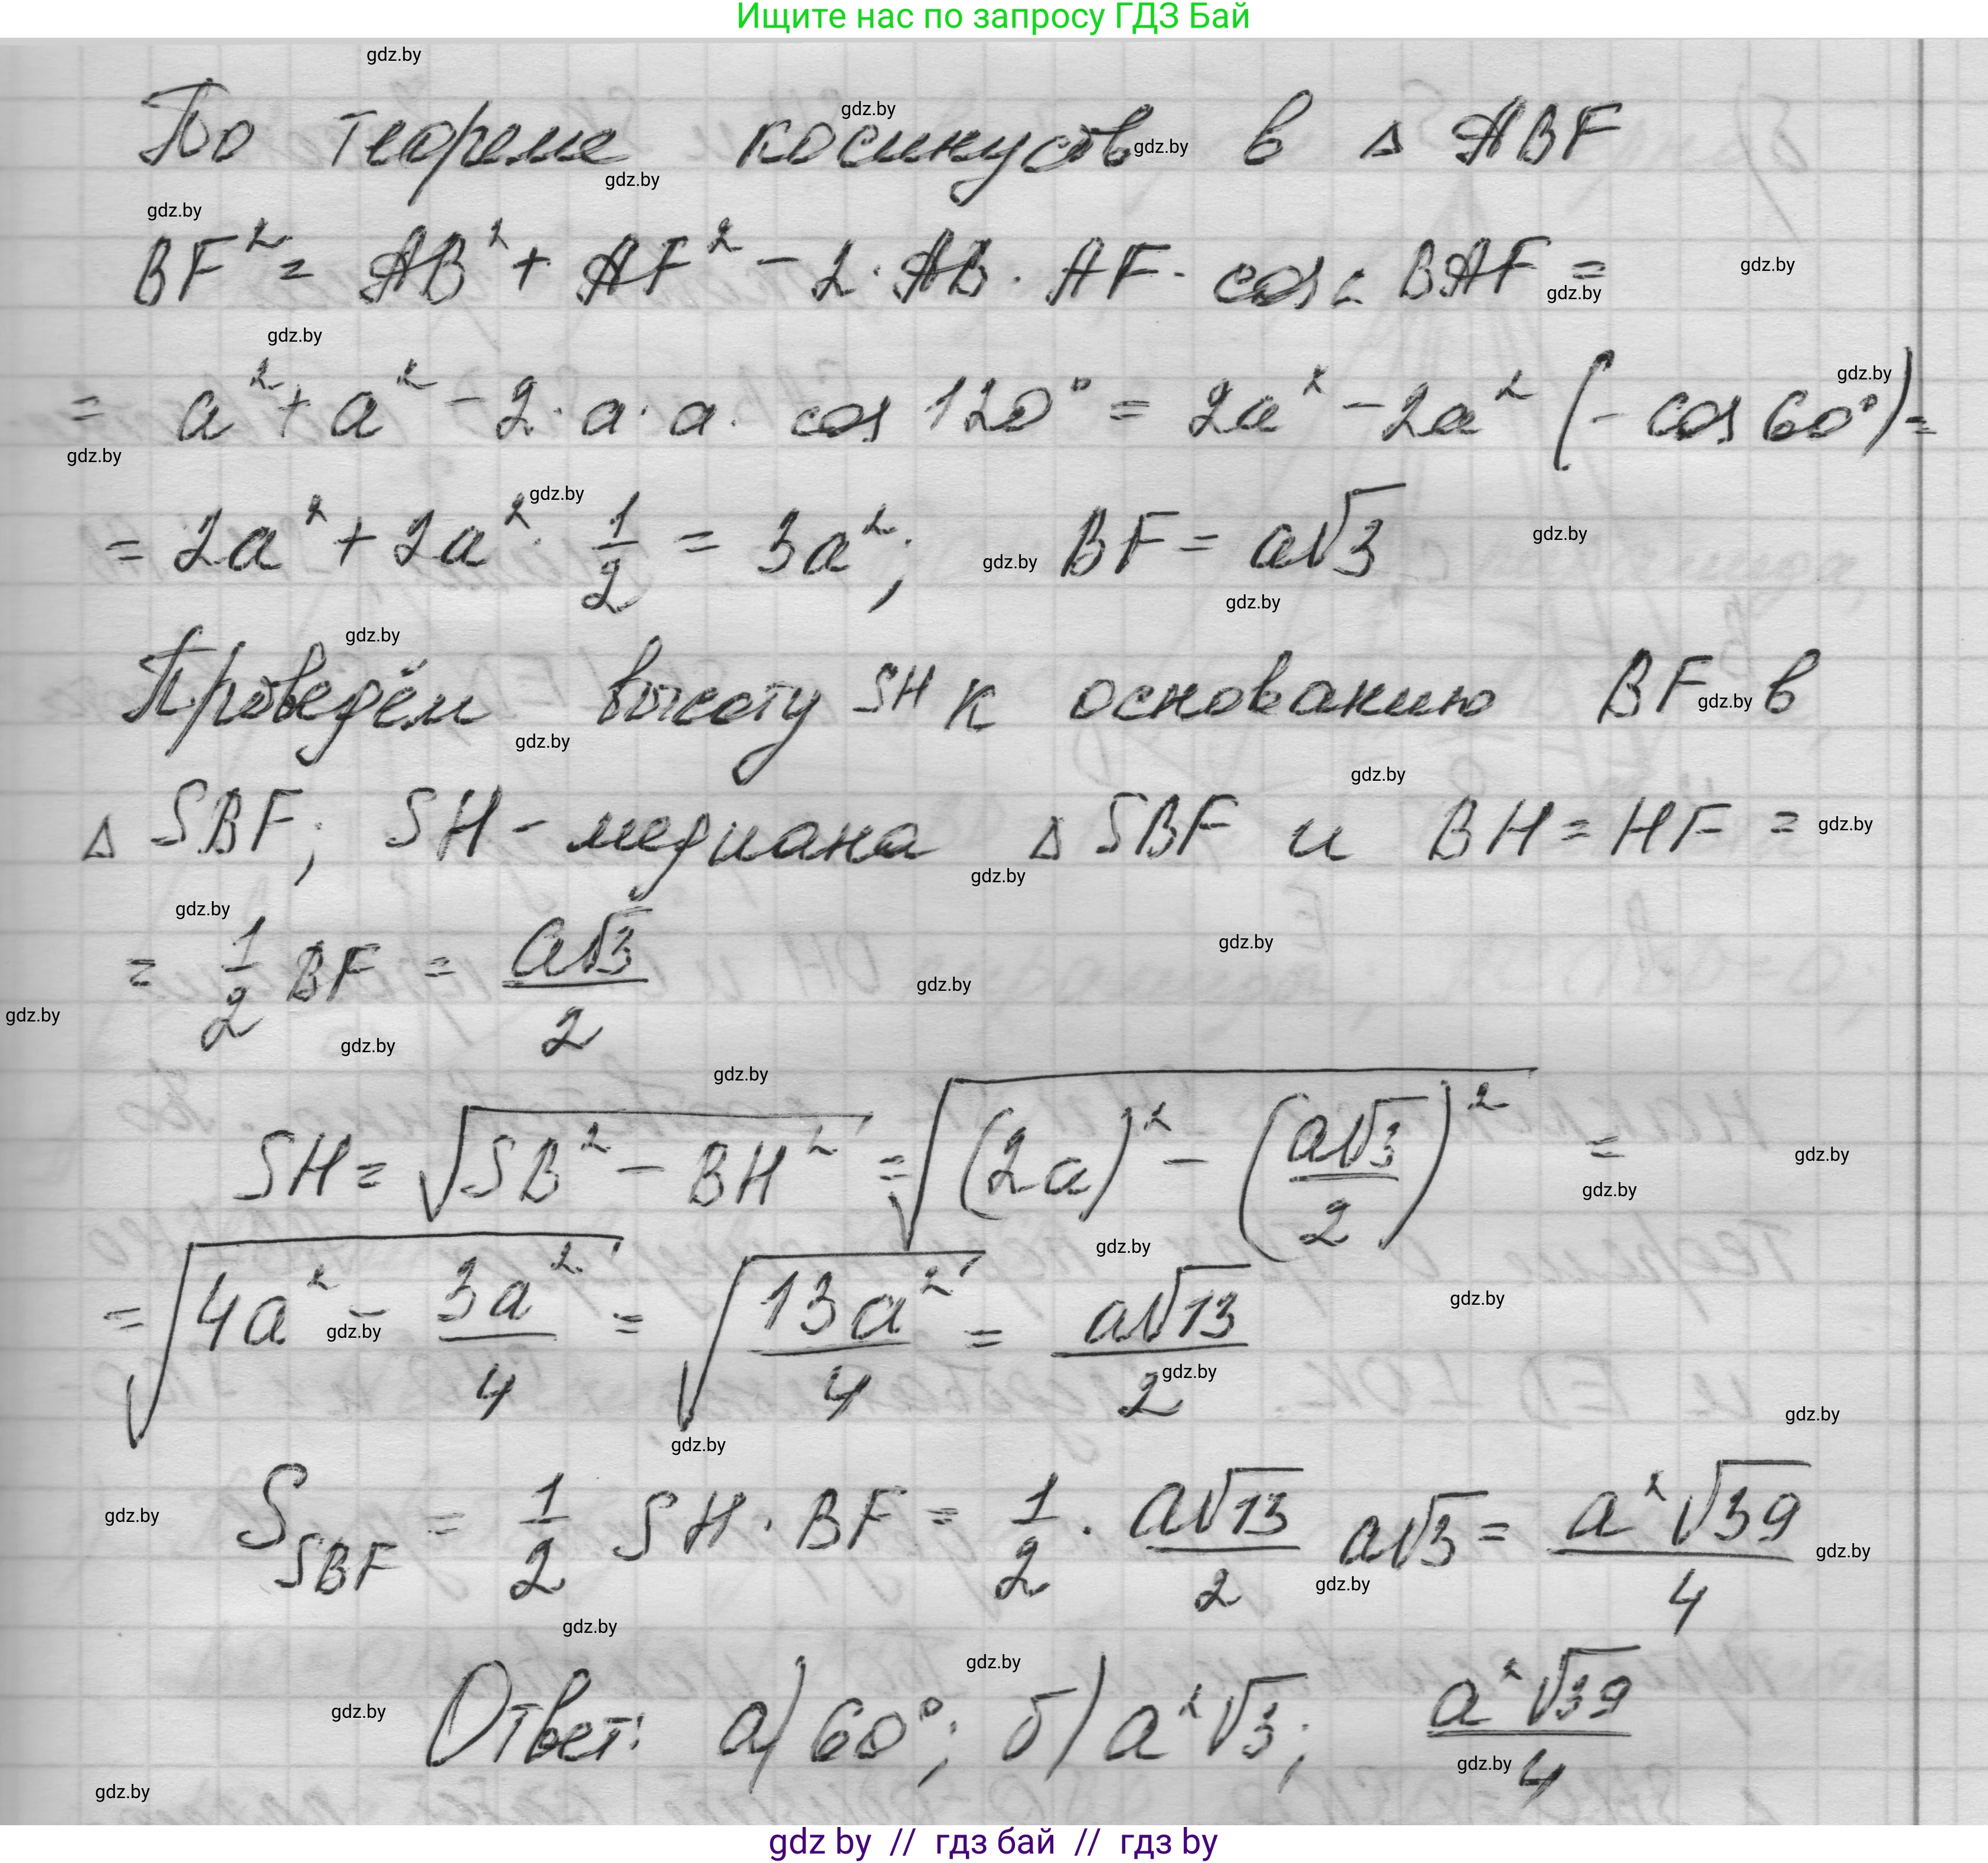 Ищите нас по запросу ГДЗ Бай
gdz.by
По теореме косинусов в Δ ABF
BF² = AB² + AF² − 2 · AB · AF · cos ∠ BAF =
= a² + a² − 2 · a · a · cos 120° = 2a² − 2a² (− cos 60°) =
= 2a² + 2a² · 1/2 = 3a²; BF = a√3
Проведём высоту SH к основанию BF в
Δ SBF; SH - медиана Δ SBF и BH = HF =
= 1/2 BF = a√3/2
SH = √(SB² − BH²) = √((2a)² − (a√3/2)²) =
= √(4a² − 3a²/4) = √(13a²/4) = a√13/2
S_SBF = 1/2 SH · BF = 1/2 · a√13/2 a√3 = a²√39/4
Ответ: а) 60°; б) a²√3; a²√39/4
gdz by // гдз бай // гдз by